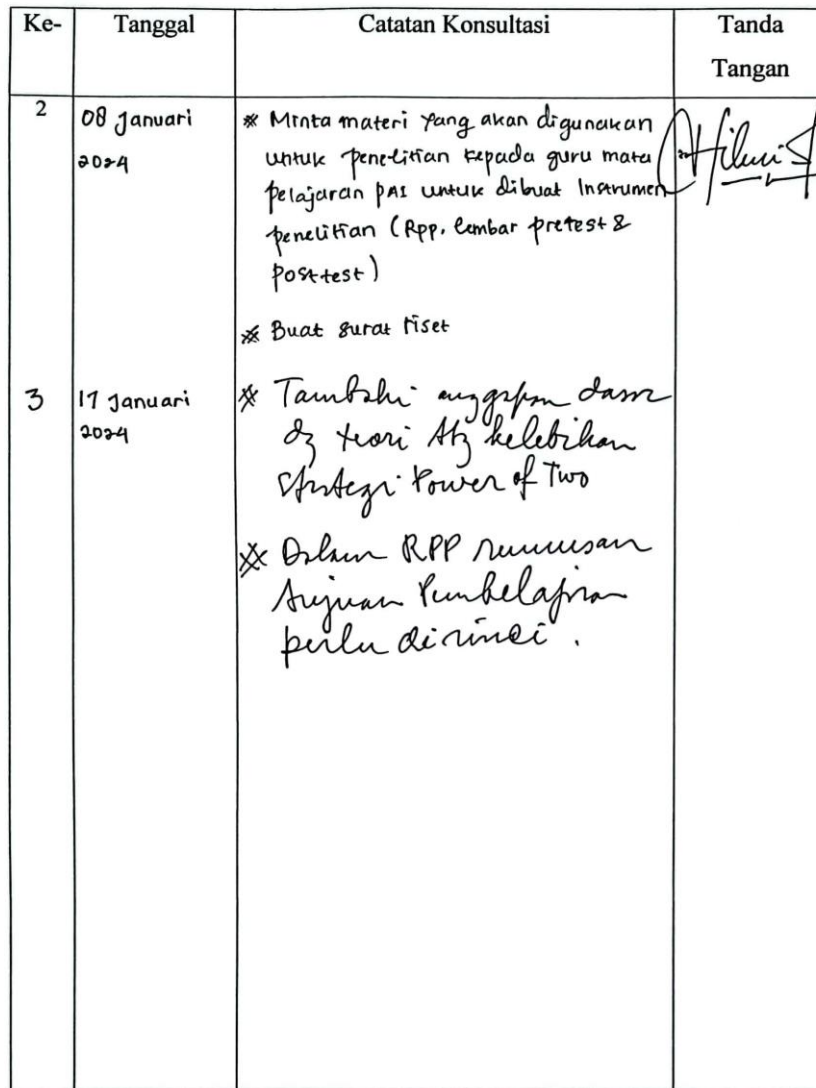 Ke- Tanggal Catatan Konsultasi Tanda
Tangan
2 08 Januari * Minta materi yang akan digunakan
2024 untuk penelitian kepada guru mata
pelajaran PAI untuk dibuat Instrumen
penelitian (Rpp, lembar pretest &
posttest)
* Buat surat riset
3 17 Januari * Tambahi anggapan dasar
2024 dg teori ttg kelebihan
strategi Power of Two
* Dalam RPP rumusan
tujuan Pembelajaran
perlu dirinci.